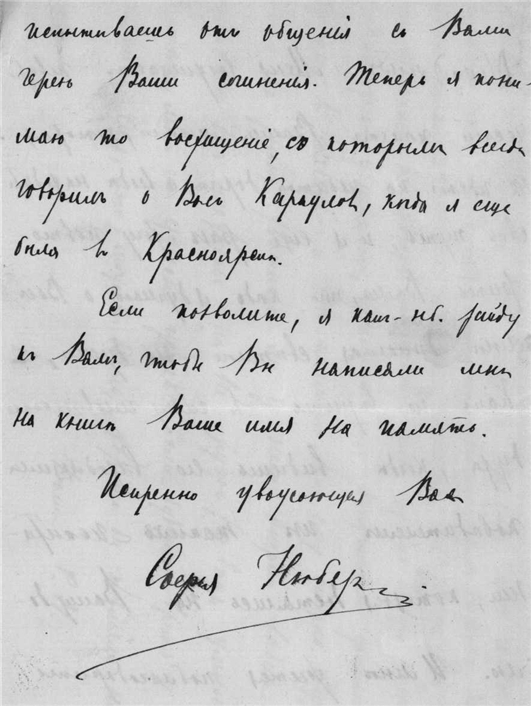 испытываешь отъ общенія съ Вами
черезъ Ваши сочиненія. Теперь я пони-
маю то восхищеніе, съ которымъ всегда
говорилъ о Васъ Караулов, когда я еще
была въ Красноярскѣ.
Если позволите, я какъ-нб. зайду
къ Вамъ, чтобы Вы написали мнѣ
на книгѣ Ваше имя на память.
Искренно уважающая Васъ
Софья Нюберг